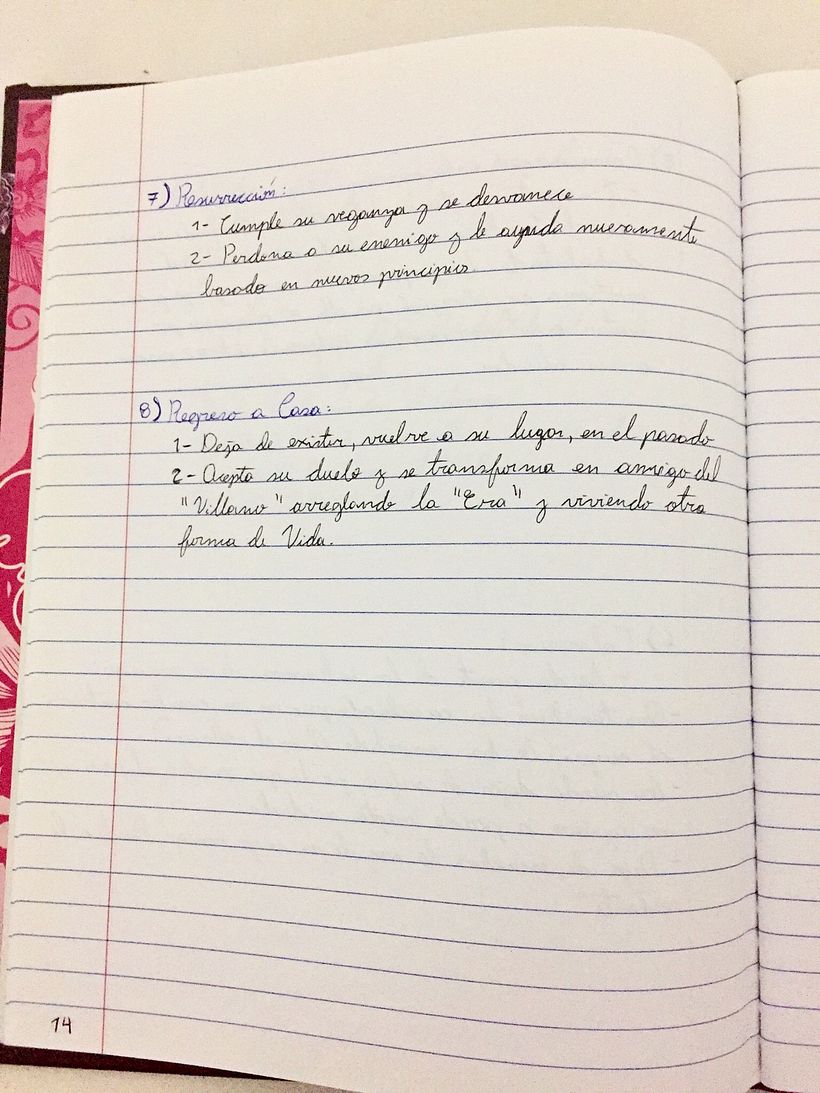 7) Resurrección:
1- Cumple su veganza y se desvanece
2- Perdona a su enemigo y le ayuda nuevamente
basado en nuevos principios.
8) Regreso a Casa:
1- Deja de existir, vuelve a su lugar, en el pasado
2- Acepta su duelo y se transforma en amigo del
"Villano" arreglando la "Era" y viviendo otra
forma de Vida.
14